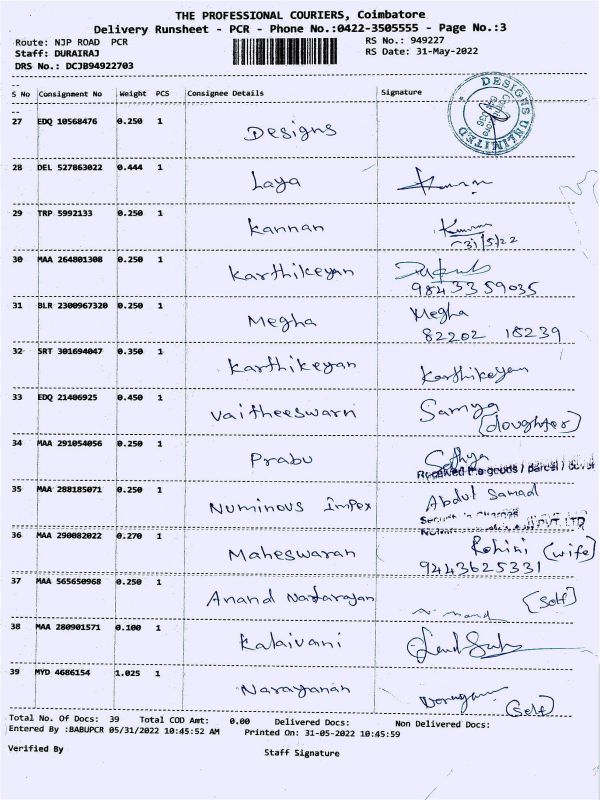 THE PROFESSIONAL COURIERS, Coimbatore
Delivery Runsheet - PCR - Phone No.:0422-3505555 - Page No.:3
Route: NJP ROAD PCR RS No.: 949227
Staff: DURAIRAJ RS Date: 31-May-2022
DRS No.: DCJB94922703
S No Consignment No Weight PCS Consignee Details Signature
27 EDQ 10568476 0.250 1 Designs
DESIGNS UNLIMITED
28 DEL 527863022 0.444 1 Laya
29 TRP 5992133 0.250 1 Kannan
31/5/22
30 MAA 264801308 0.250 1 Karthikeyan
9843359035
31 BLR 2300967320 0.250 1 Megha Megha
82202 18239
32 SRT 301694047 0.350 1 Karthikeyan Karthikeyan
33 EDQ 21406925 0.450 1 Vaitheeswarn Samya
(doughter)
34 MAA 291054056 0.250 1 Prabu Sathya
Received the goods / parcel / cover
35 MAA 288185071 0.250 1 Numinous Impex Abdul Samad
PVT. LTD
36 MAA 290082022 0.270 1 Maheswaran Rohini (wife)
9443625331
37 MAA 565650968 0.250 1 Anand Natarajan (Self)
Anand
38 MAA 280901571 0.100 1 Kalaivani
39 MYD 4686154 1.025 1 Narayanan
(Self)
Total No. Of Docs: 39 Total COD Amt: 0.00 Delivered Docs: Non Delivered Docs:
Entered By :BABUPCR 05/31/2022 10:45:52 AM Printed On: 31-05-2022 10:45:59
Verified By Staff Signature